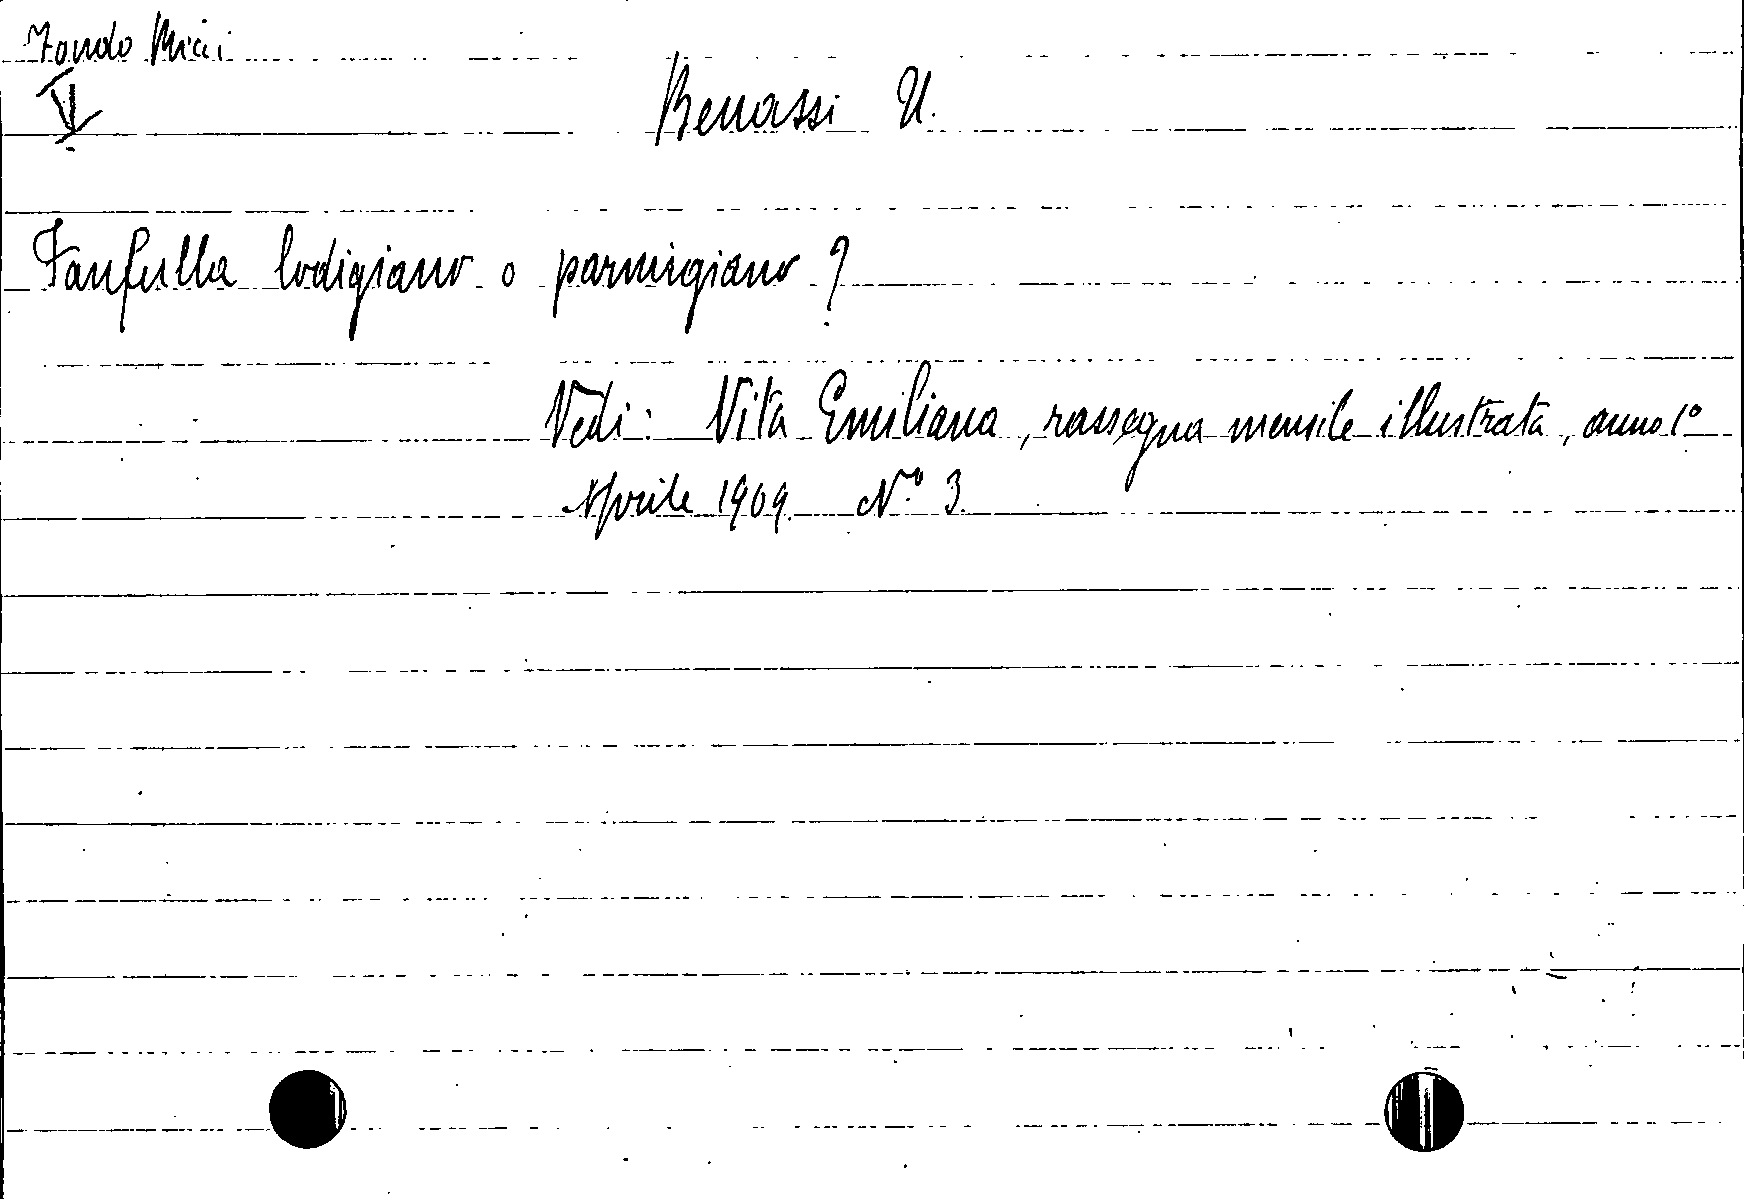 Fondo Mici
V
Benassi U.
Fanfulla lodigiano o parmigiano ?
Vedi: Vita Emiliana, rassegna mensile illustrata, anno 1°
Aprile 1909. N.° 3.